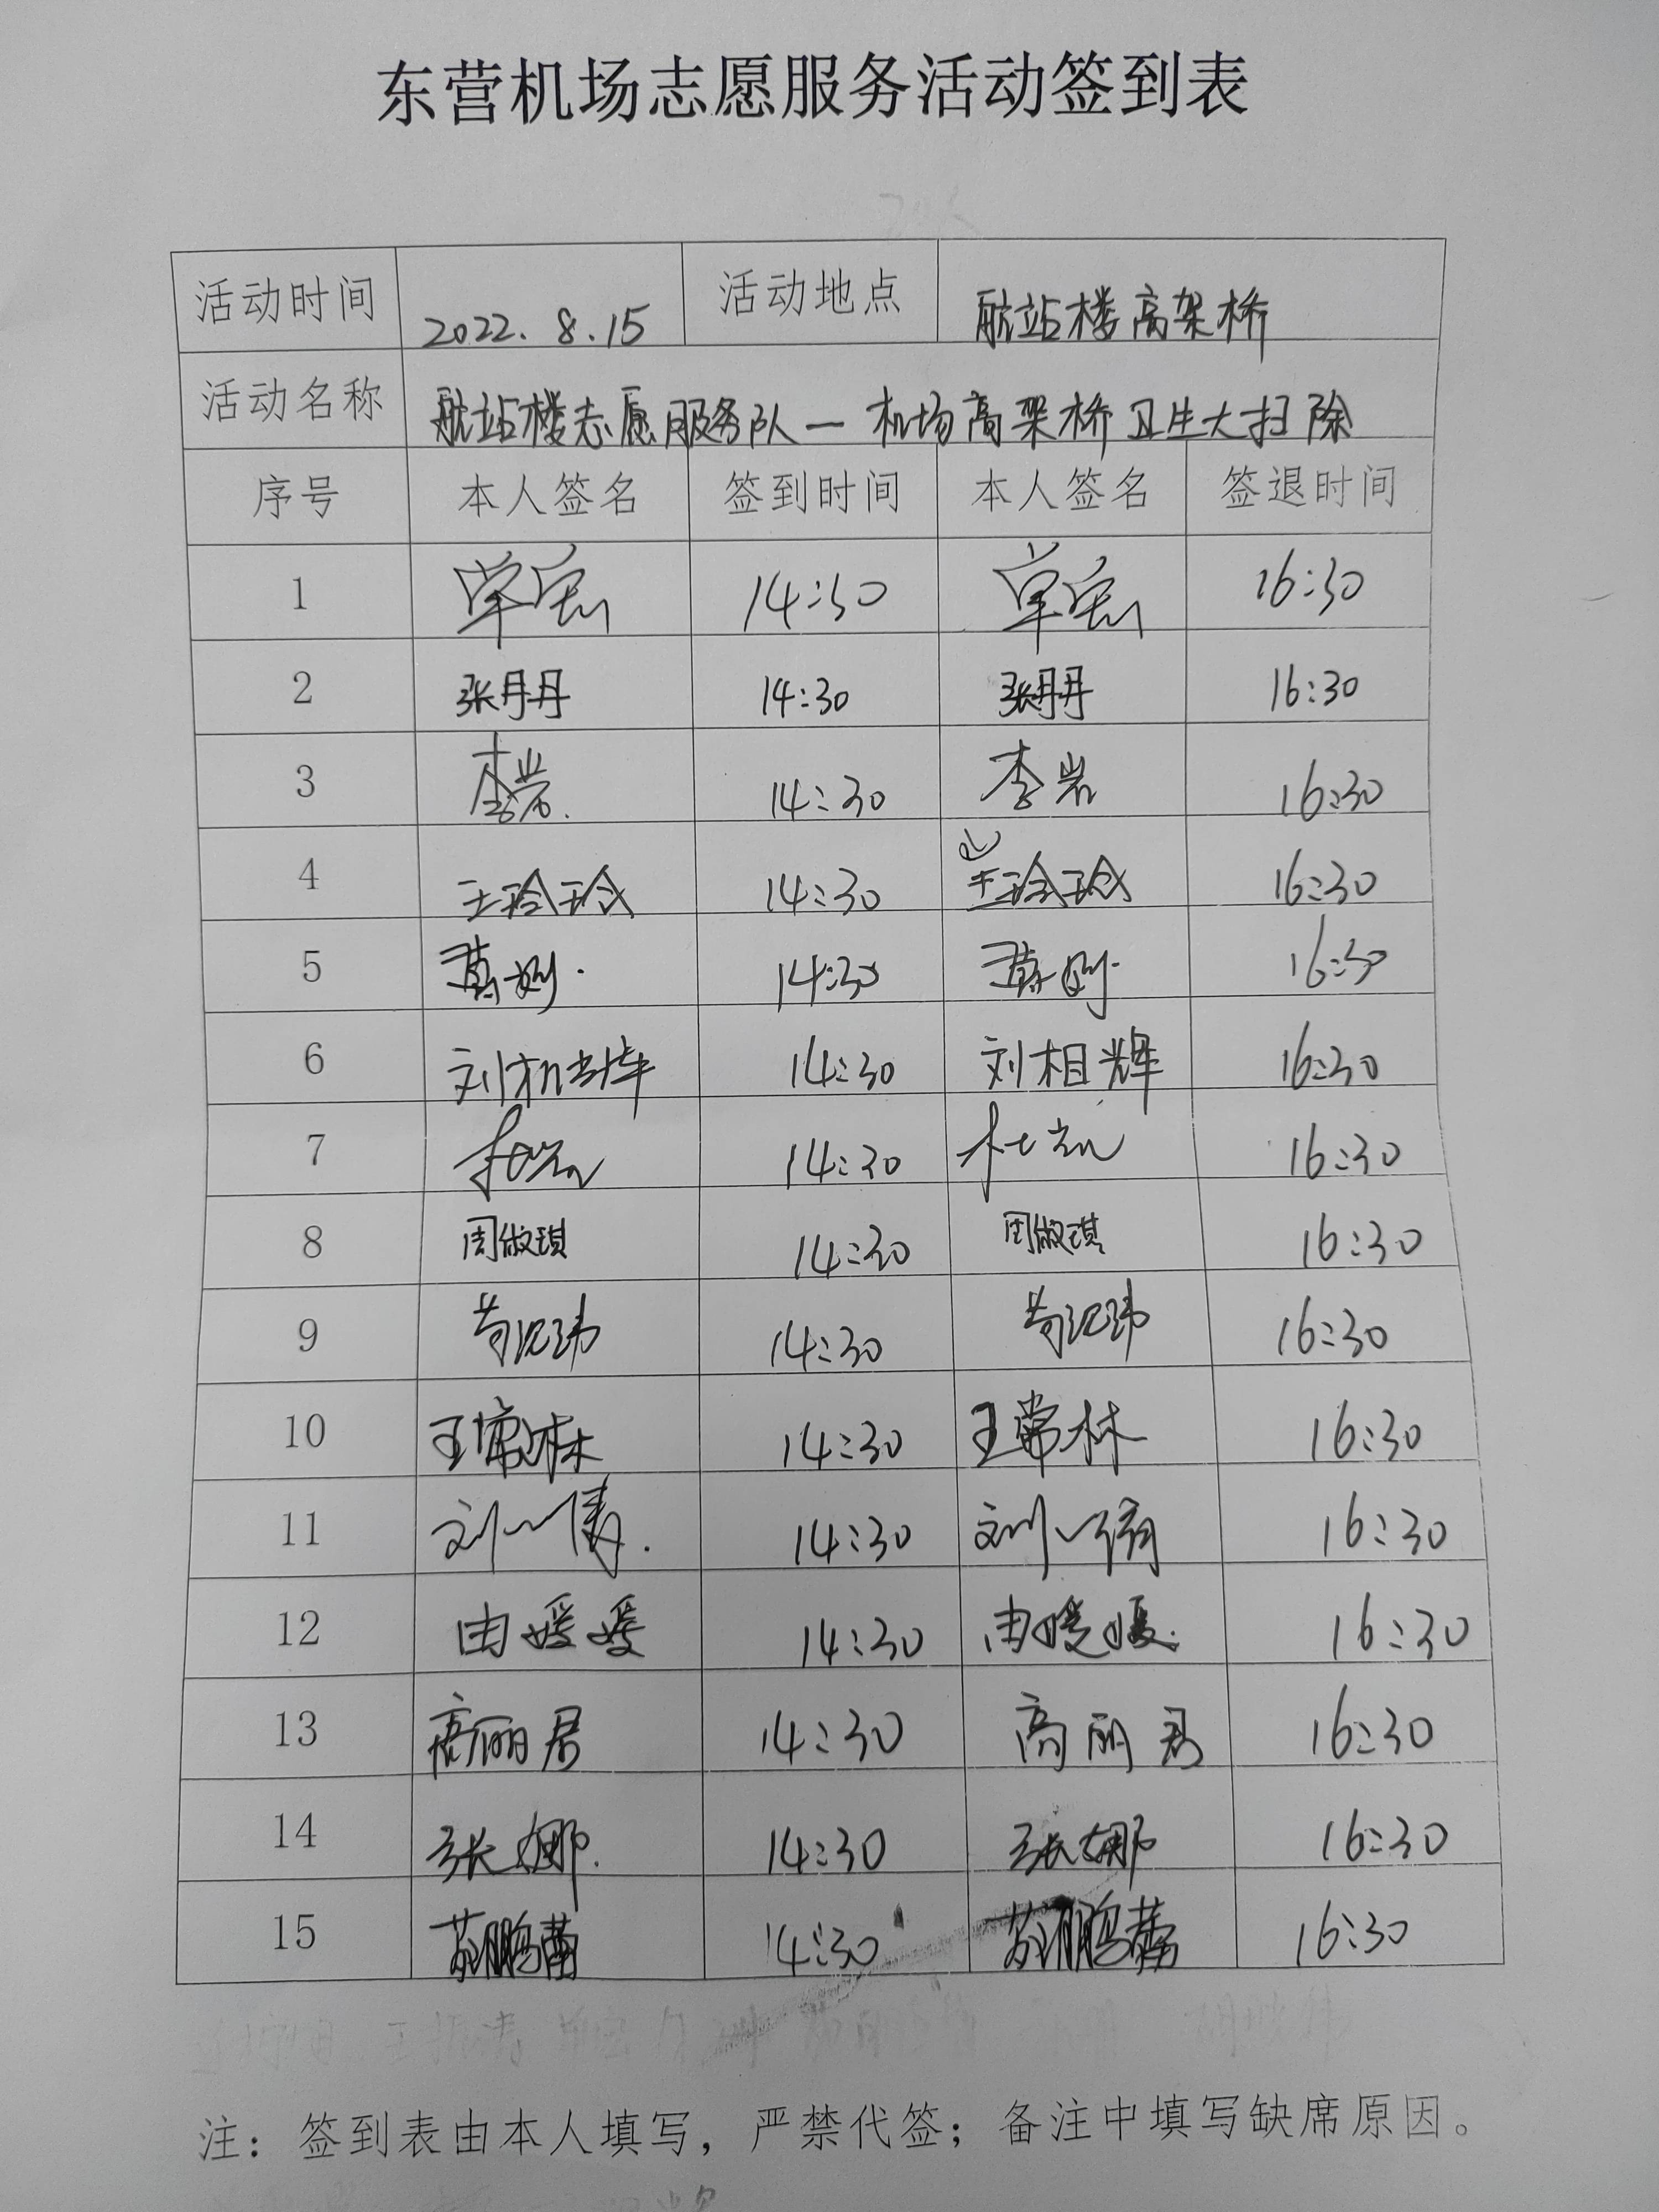 东营机场志愿服务活动签到表
活动时间 2022.8.15 活动地点 航站楼高架桥
活动名称 航站楼志愿服务队—机场高架桥卫生大扫除
序号 本人签名 签到时间 本人签名 签退时间
1 14:30 16:30
2 张丹丹 14:30 张丹丹 16:30
3 李岩. 14:30 李岩 16:30
4 王玲玲 14:30 王玲玲 16:30
5 14:30 16:30
6 刘相辉 14:30 刘相辉 16:30
7 14:30 16:30
8 周俶琪 14:30 周俶琪 16:30
9 14:30 16:30
10 王常林 14:30 王常林 16:30
11 14:30 16:30
12 由媛媛 14:30 由媛媛 16:30
13 高丽君 14:30 高丽君 16:30
14 张娜. 14:30 张娜 16:30
15 14:30 16:30
注：签到表由本人填写，严禁代签；备注中填写缺席原因。